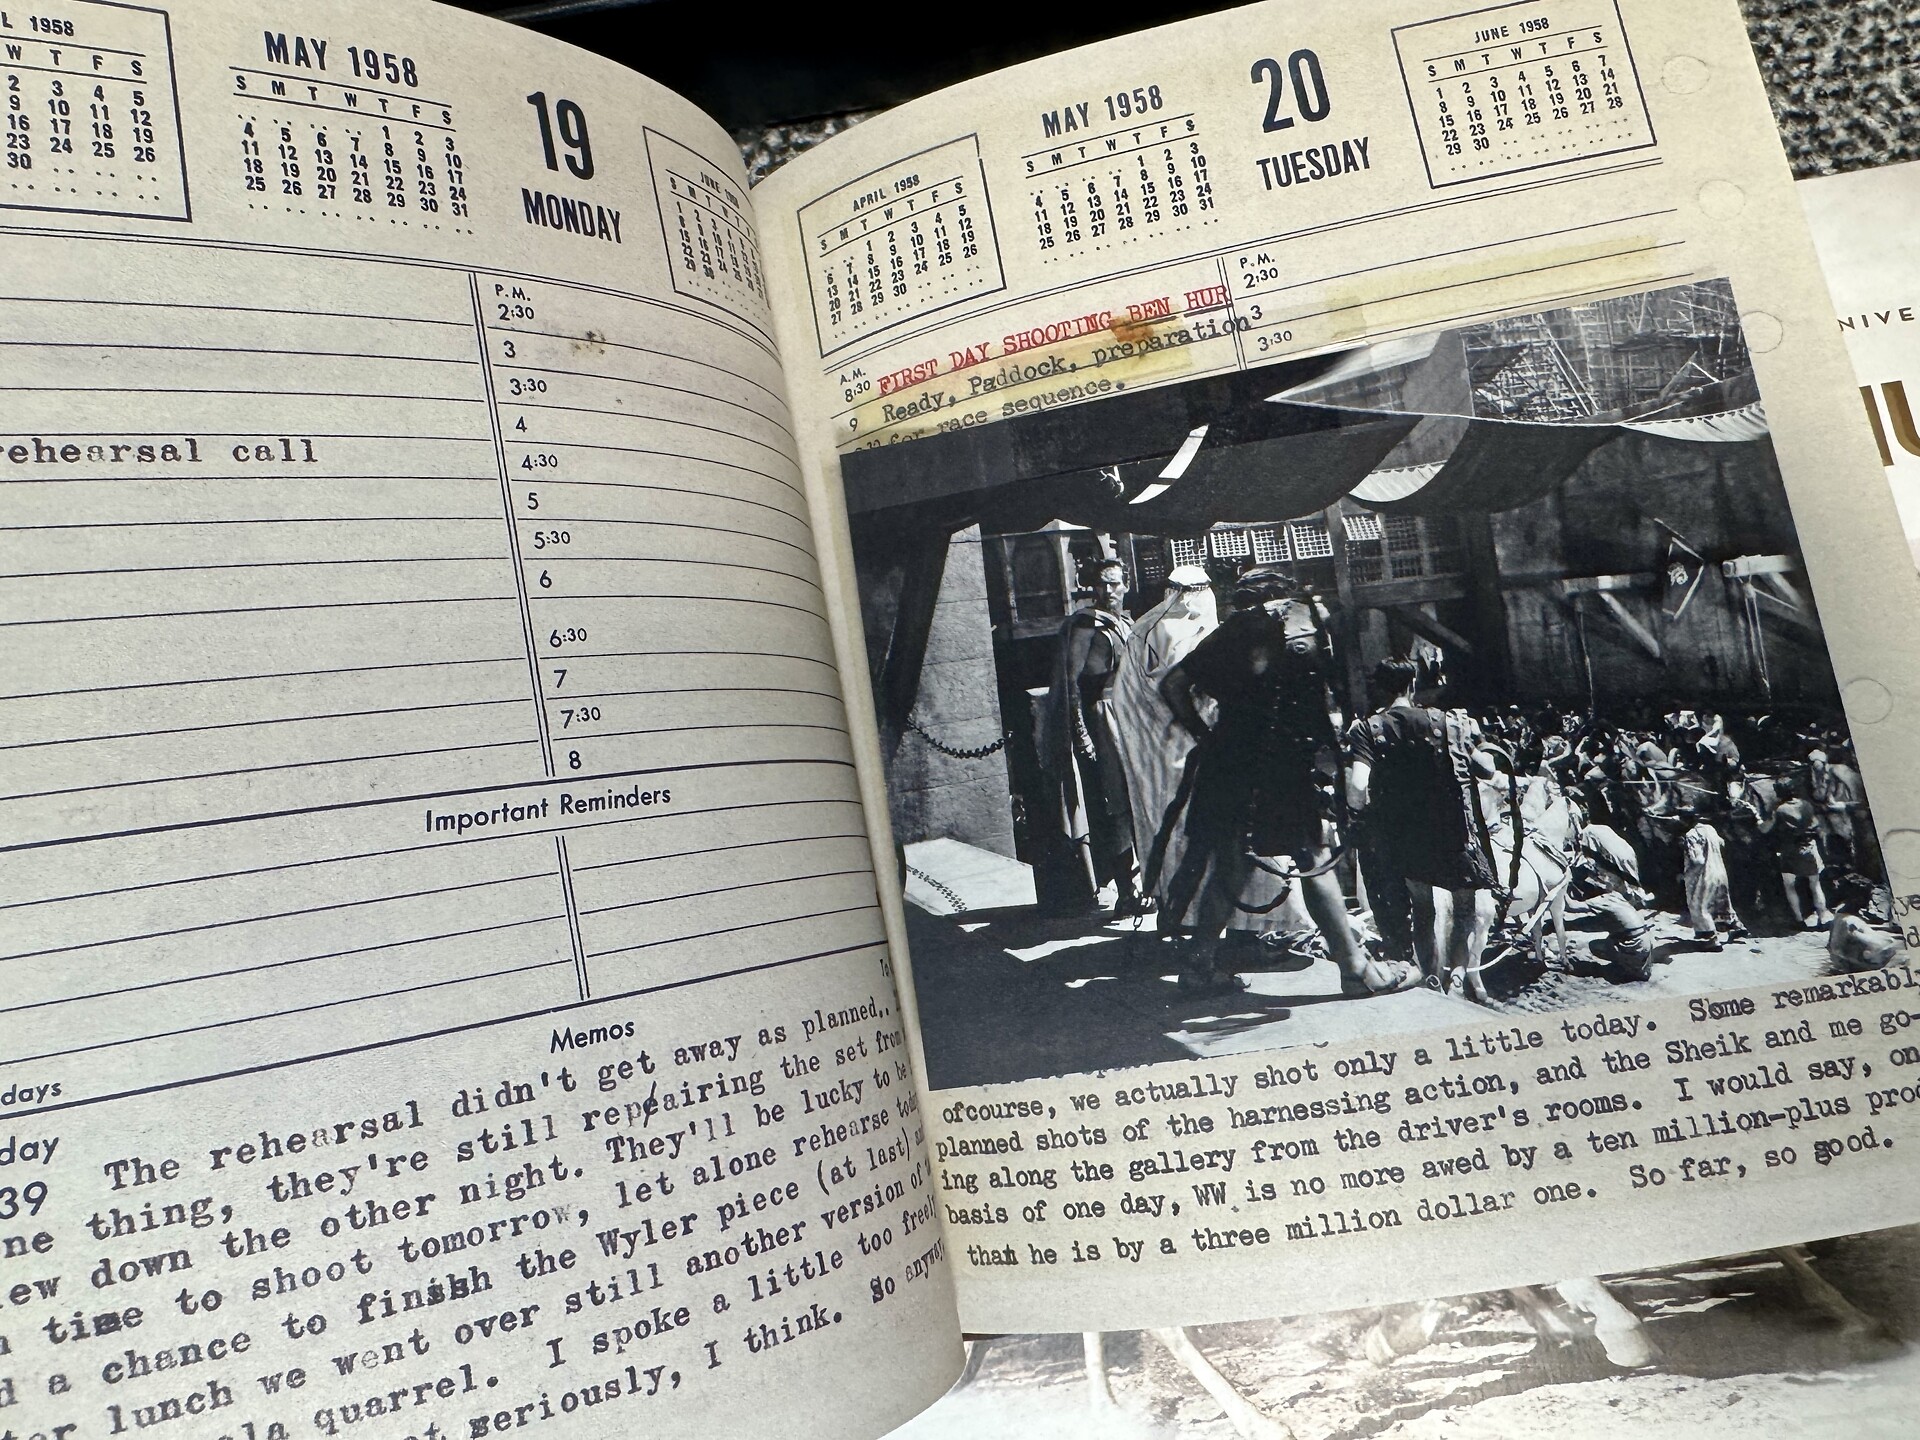 L 1958
W T F S
2 3 4 5
9 10 11 12
16 17 18 19
23 24 25 26
30
MAY 1958
S M T W T F S
1 2 3
4 5 6 7 8 9 10
11 12 13 14 15 16 17
18 19 20 21 22 23 24
25 26 27 28 29 30 31
19
MONDAY
JUNE
P.M.
2:30
3
3:30
4
rehearsal call
4:30
5
5:30
6
6:30
7
7:30
8
Important Reminders
Memos
days
day
39
The rehearsal didn't get away as planned..
ne thing, they're still repeairing the set from
ew down the other night. They'll be lucky to be
time to shoot tomorrow, let alone rehearse
d a chance to finish the Wyler piece (at last)
ter lunch we went over still another version of
la quarrel. I spoke a little too freely
seriously, I think. So
APRIL 1958
S M T W T F S
1 2 3 4 5
6 7 8 9 10 11 12
13 14 15 16 17 18 19
20 21 22 23 24 25 26
27 28 29 30
MAY 1958
S M T W T F S
1 2 3
4 5 6 7 8 9 10
11 12 13 14 15 16 17
18 19 20 21 22 23 24
25 26 27 28 29 30 31
20
TUESDAY
JUNE 1958
S M T W T F S
1 2 3 4 5 6 7
8 9 10 11 12 13 14
15 16 17 18 19 20 21
22 23 24 25 26 27 28
29 30
A.M.
8:30 FIRST DAY SHOOTING BEN HUR
9 Ready, Paddock, preparation
for race sequence.
P.M.
2:30
3
3:30
ofcourse, we actually shot only a little today. Some remarkably
planned shots of the harnessing action, and the Sheik and me go-
ing along the gallery from the driver's rooms. I would say, on
basis of one day, WW is no more awed by a ten million-plus
than he is by a three million dollar one. So far, so good.
NIVE